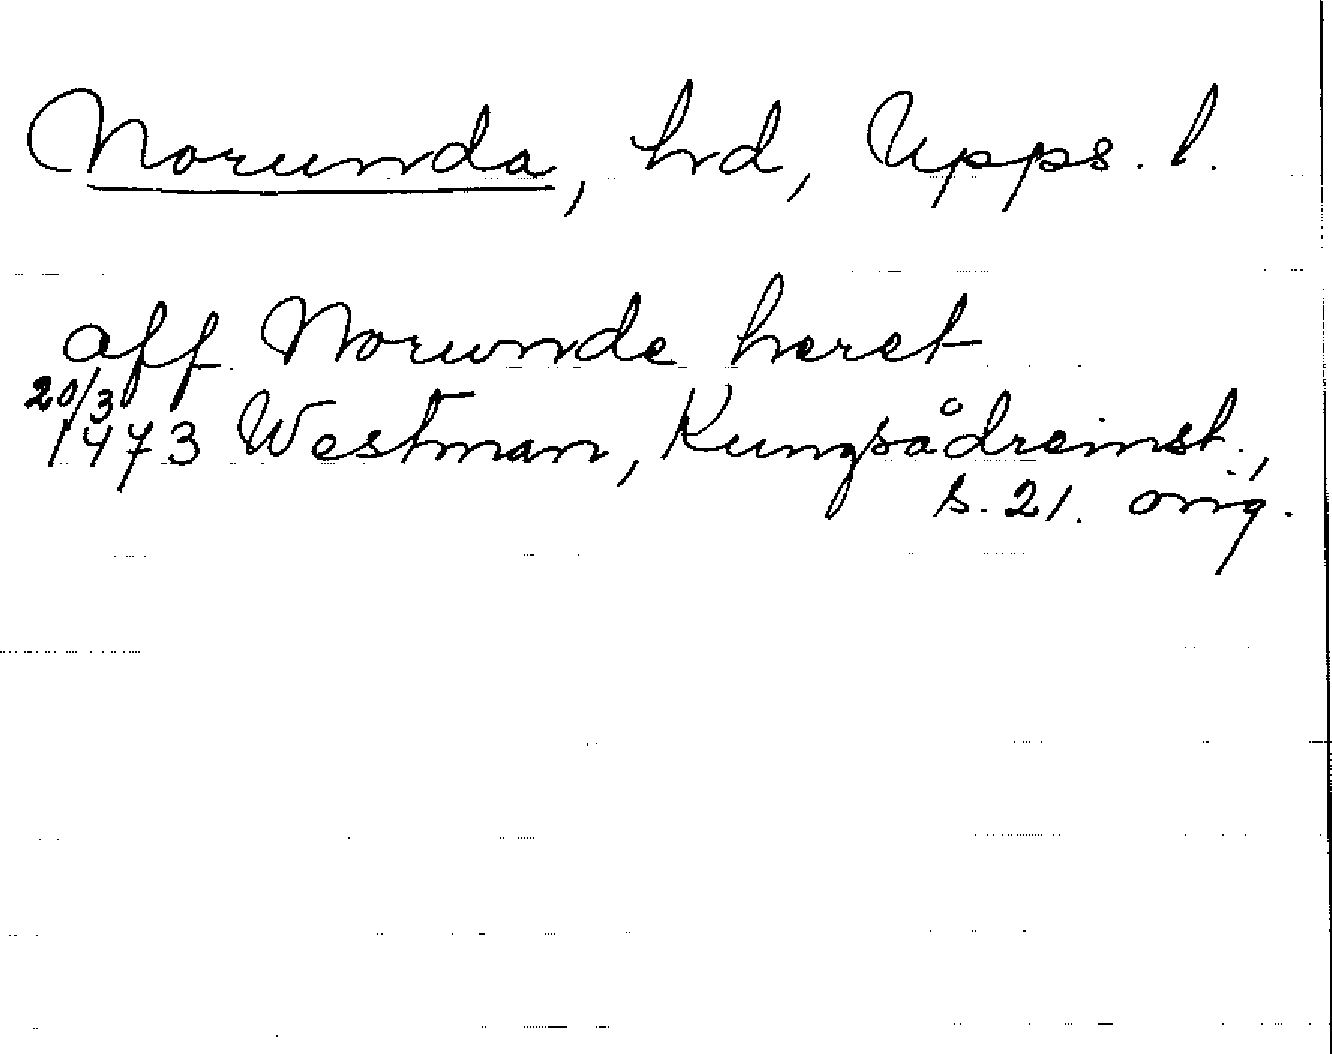 Norunda, hd, Upps. l.
aff Norunde heret
20/3
1473 Westman, Kungsådreinst.,
s. 21. orig.